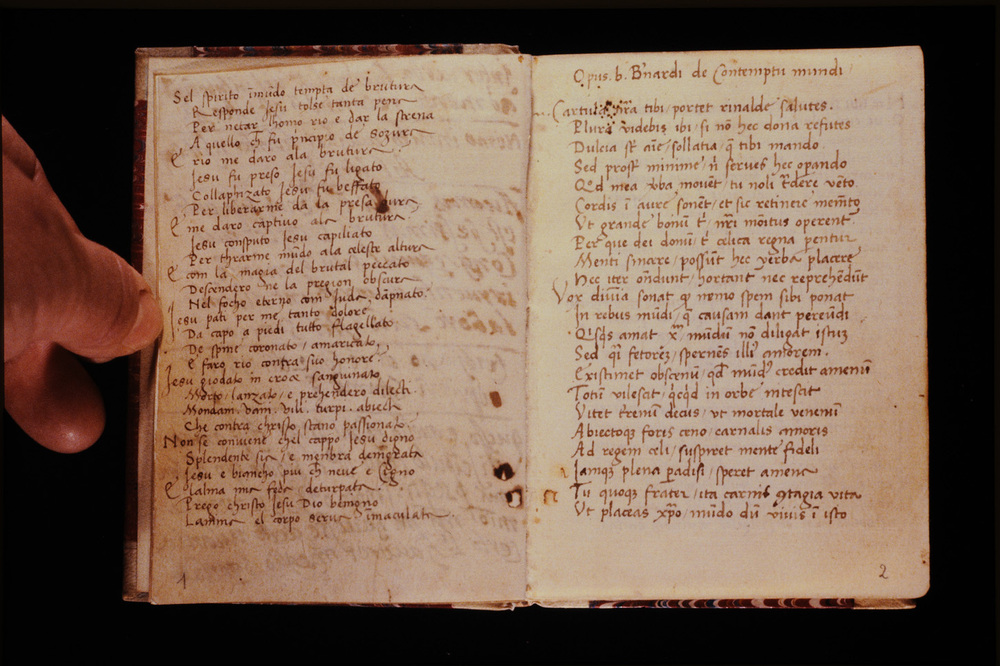 Sel spirito imudo tempta de brutura
Responde Jesu tolse tanta pena
Per necar lhomo rio e dar la strena
A quello ch fu pncipio de sozura
E rio me daro ala brutura.
Jesu fu preso Jesu fu ligato
Jesu fu beffato
Per liberarme da la presa
E me daro captivo ala brutura.
Jesu consputo Jesu capiliato
Per thrarme mudo ala celeste altura
E com la magia del brutal peccato
Descendero ne la pregion obscura
Nel focho eterno com Juda, dapnato
Jesu pati per me, tanto dolore
Da capo a piedi tutto flagellato
De spine coronato, amaricato,
E faro rio contra suo honore.
Jesu giodato in croce sanguinato
Morto, lanzato, e prehendero dilecti.
Mondam. vam. vili. turpi. abiecti
Che contra christo, stano passionati.
Non se conviene chel cappo Jesu digno
Splendente sia, e menbra denigrata
Jesu e biancho piu ch neve e Cegno
E lalma mia feda deturpata.
Prego christo Jesu Dio benigno
Lamma el corpo serva imaculata.
1
Opus. b. Bnardi de Contemptu mundi.
Cartula nra tibi, portet rinalde salutes.
Plura videbis ibi, si no hec dona refutes
Dulcia st aie, sollatia, q tibi mando.
Sed prost minime, n serves hec opando
Qd mea vba movet, tu noli tdere veto.
Cordis i aure sonet, et sic retinere meito
Ut grande bonu t nri moitus operent
Per que dei donu t celica regna pentur
Menti sincere, possut hec verba placere
Hec iter ondunt, hortant nec reprehedut
Vox divia sonat q nemo spem sibi ponat
In rebus mudi, q causam dant pereudi
Qsqs amat xm, mudu no diligat istu
Sed qi fetores, spernes illi amorem.
Existimet obscenu, qd mud credit amenu
Totu vilescit, qcqd in orbe
Vitet trenu decus, ut mortale venenu
Abiectoq foris ceno, carnalis amoris
Ad regem celi, suspiret mente fideli
Iamq plena padisi, speret amena
Tu quoq frater, ita carnis 9tagia vita
Ut placeas xpo, mudo du vivis i isto
2